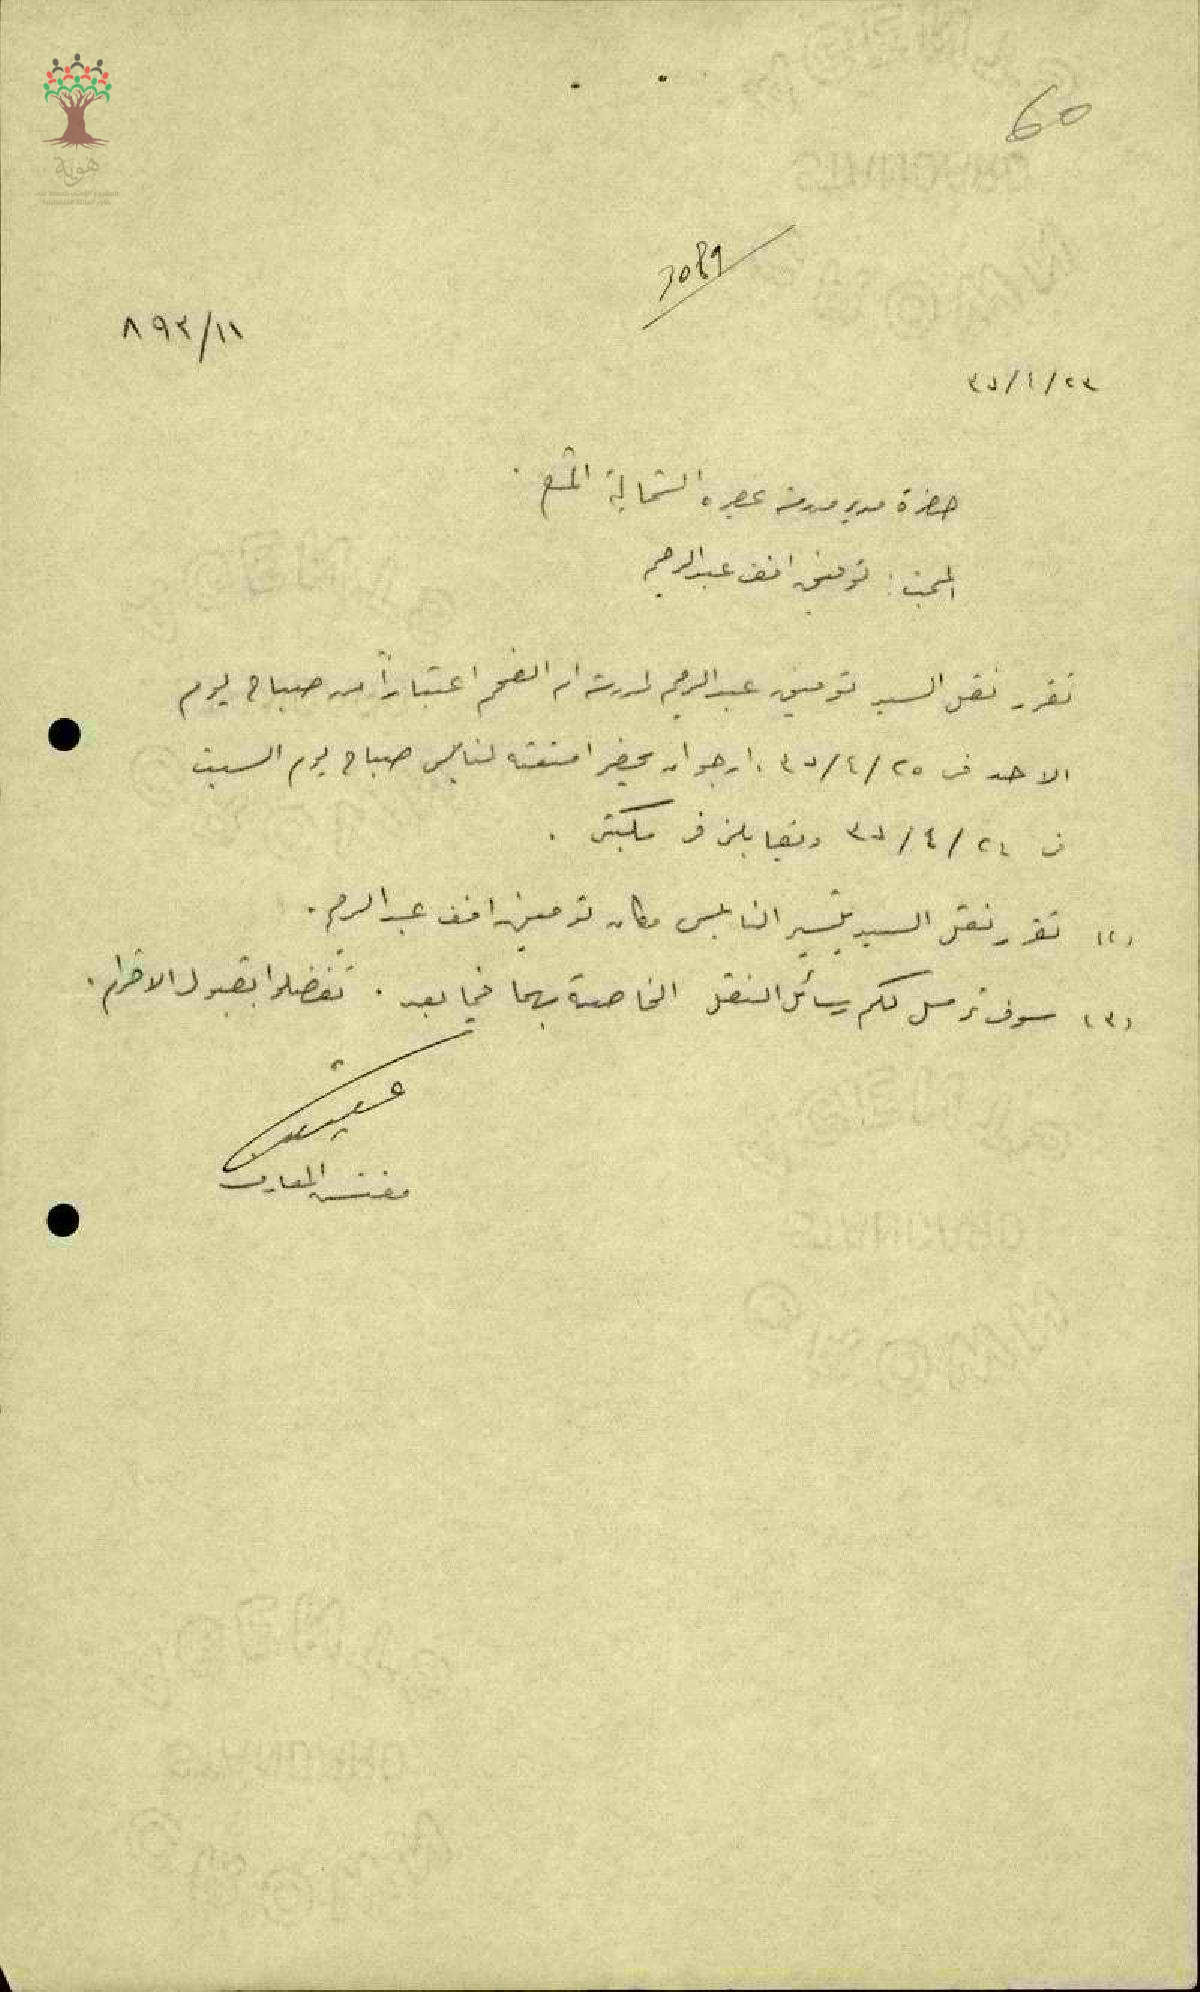 60
هوية
٨٩٣/١١
٣٧/٤/٢٣
حضرة مدير مدرسة عصيره الشمالية المحترم .
المبحث : توفيق افندي عبدالرحيم
تقرر نقل السيد توفيق عبدالرحيم لمدرسة ام الفحم اعتباراً من صباح يوم
الاحد في ٣٧/٤/٢٥ . ارجو ان يحضر امتعته لنابلس صباح يوم السبت
في ٣٧/٤/٢٤ ويقابلني في مكتبي .
(٢) تقرر نقل السيد تيسير النابلسي مكان توفيق افندي عبدالرحيم .
(٣) سوف نرسل لكم رسائل النقل الخاصة بهما فيما بعد . تفضلوا بقبول الاحترام .
مفتش المعارف